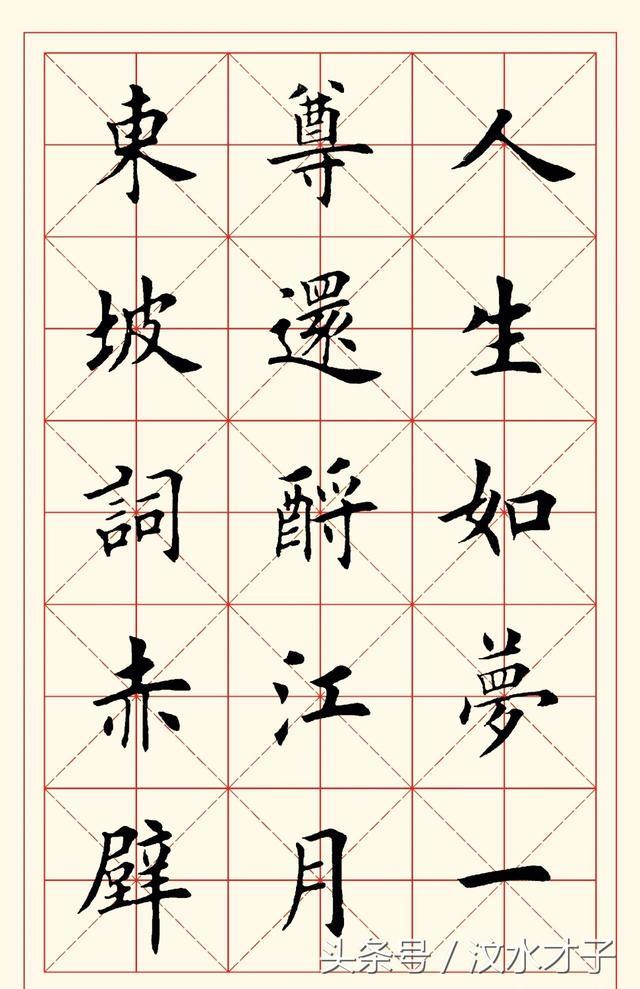 人生如夢一
尊還酹江月
東坡詞赤壁
头条号 / 汶水才子